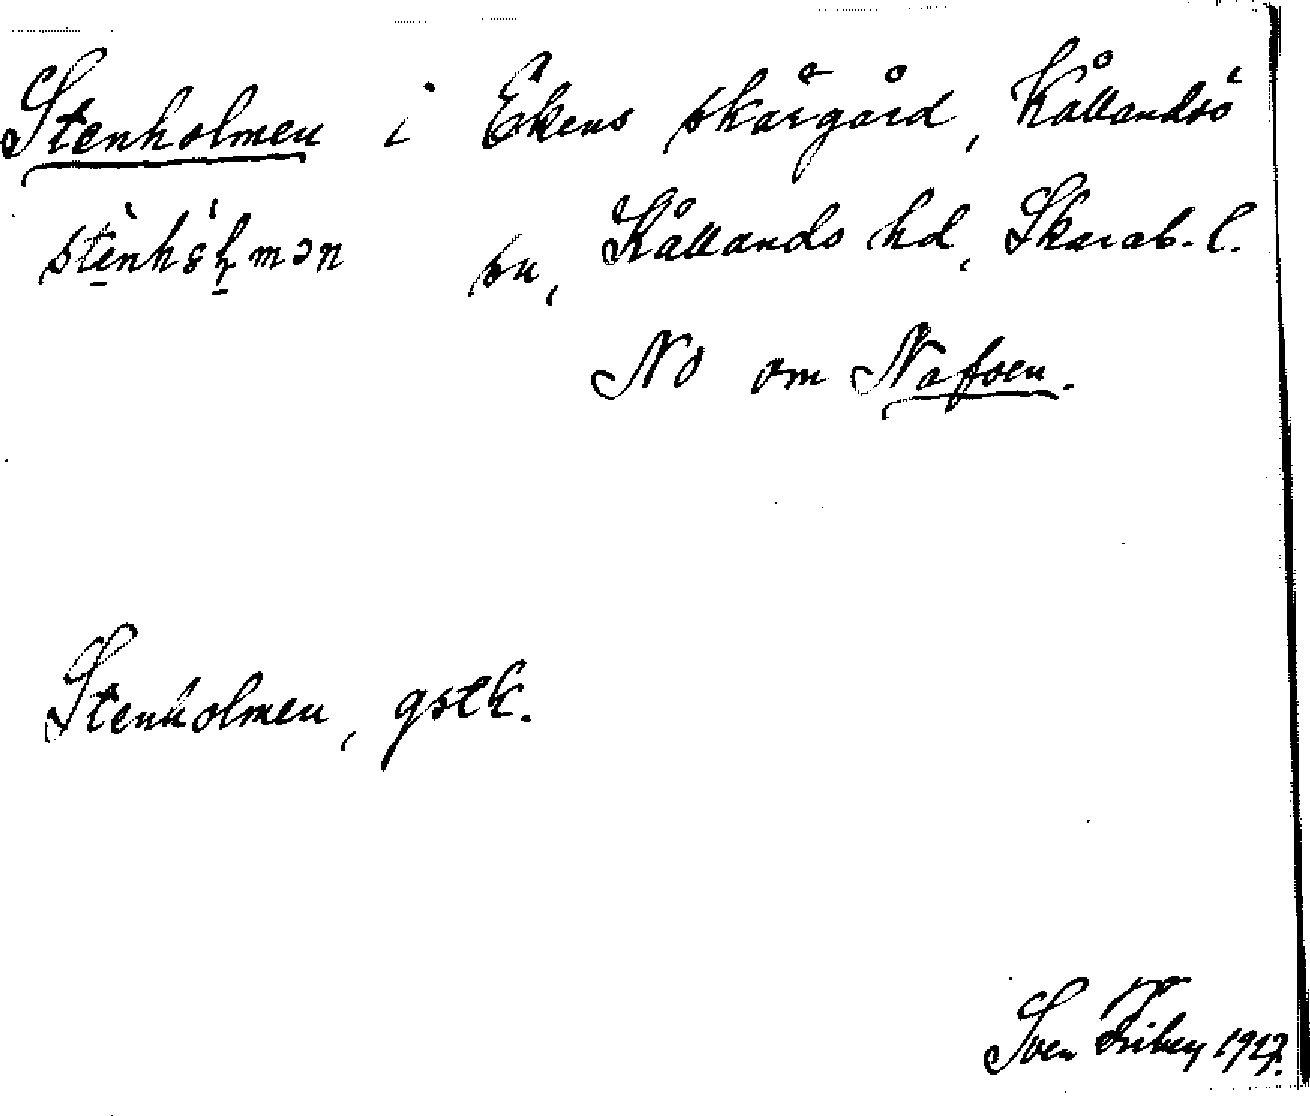 Stenholmen i Ekens skärgård, Kållandsö
sn, Kållands hd, Skarab. l.
NO om Nafsen.
Stenholmen, gstk.
Sven Friberg 1927.